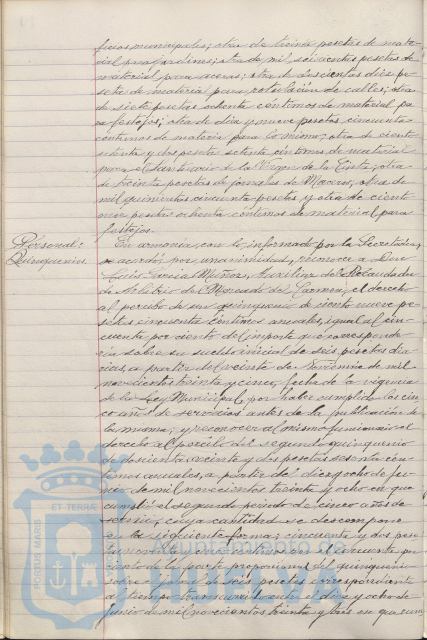 ficos municipales; otra de treinta pesetas de mate-
rial para jardines; otra de mil seiscientas pesetas de
material para aceras; otra de doscientas diez pe-
setas de material para rotulación de calles; otra
de siete pesetas ochenta céntimos de material pa-
ra festejos; otra de diez y nueve pesetas cincuenta
céntimos de material para lo mismo; otra de ciento
setenta y dos pesetas setenta céntimos de material
para el Santuario de la Virgen de la Cinta; otra
de treinta pesetas de jornales de Maceros; otra de
mil quinientas cincuenta pesetas y otra de ciento
once pesetas ochenta céntimos de material para
festejos.
Personal:
Quinquenios.
En armonía con lo informado por la Secretaría,
se acordó por unanimidad, reconocer a Don
Luis García Muñoz, Auxiliar de Recaudador
de Arbitrio del Mercado del Carmen, el derecho
al percibo de un quinquenio de ciento nueve pe-
setas cincuenta céntimos anuales, igual al cin-
cuenta por ciento del importe que correspond-
ía sobre su sueldo inicial de seis pesetas dia-
rias, a partir del veinte de Noviembre de mil
novecientos treinta y cinco, fecha de la vigencia
de la Ley Municipal, por haber cumplido los cin-
co años de servicios antes de la publicación de
la misma; y reconocer al mismo funcionario el
derecho al percibo del segundo quinquenio
de doscientas veinte y dos pesetas sesenta cén-
timos anuales, a partir del diez y ocho de ju-
nio de mil novecientos treinta y ocho en que
cumplió el segundo período de cinco años de
servicio, cuya cantidad se descompone
en la siguiente forma; cincuenta y dos pese-
cincuenta por
ciento de la parte proporcional del quinquenio
sobre el jornal de seis pesetas correspondiente
al tiempo transcurrido entre el diez y ocho de
junio de mil novecientos treinta y tres en que cum
Ayuntamiento de
PORTUS MARIS ET TERRÆ